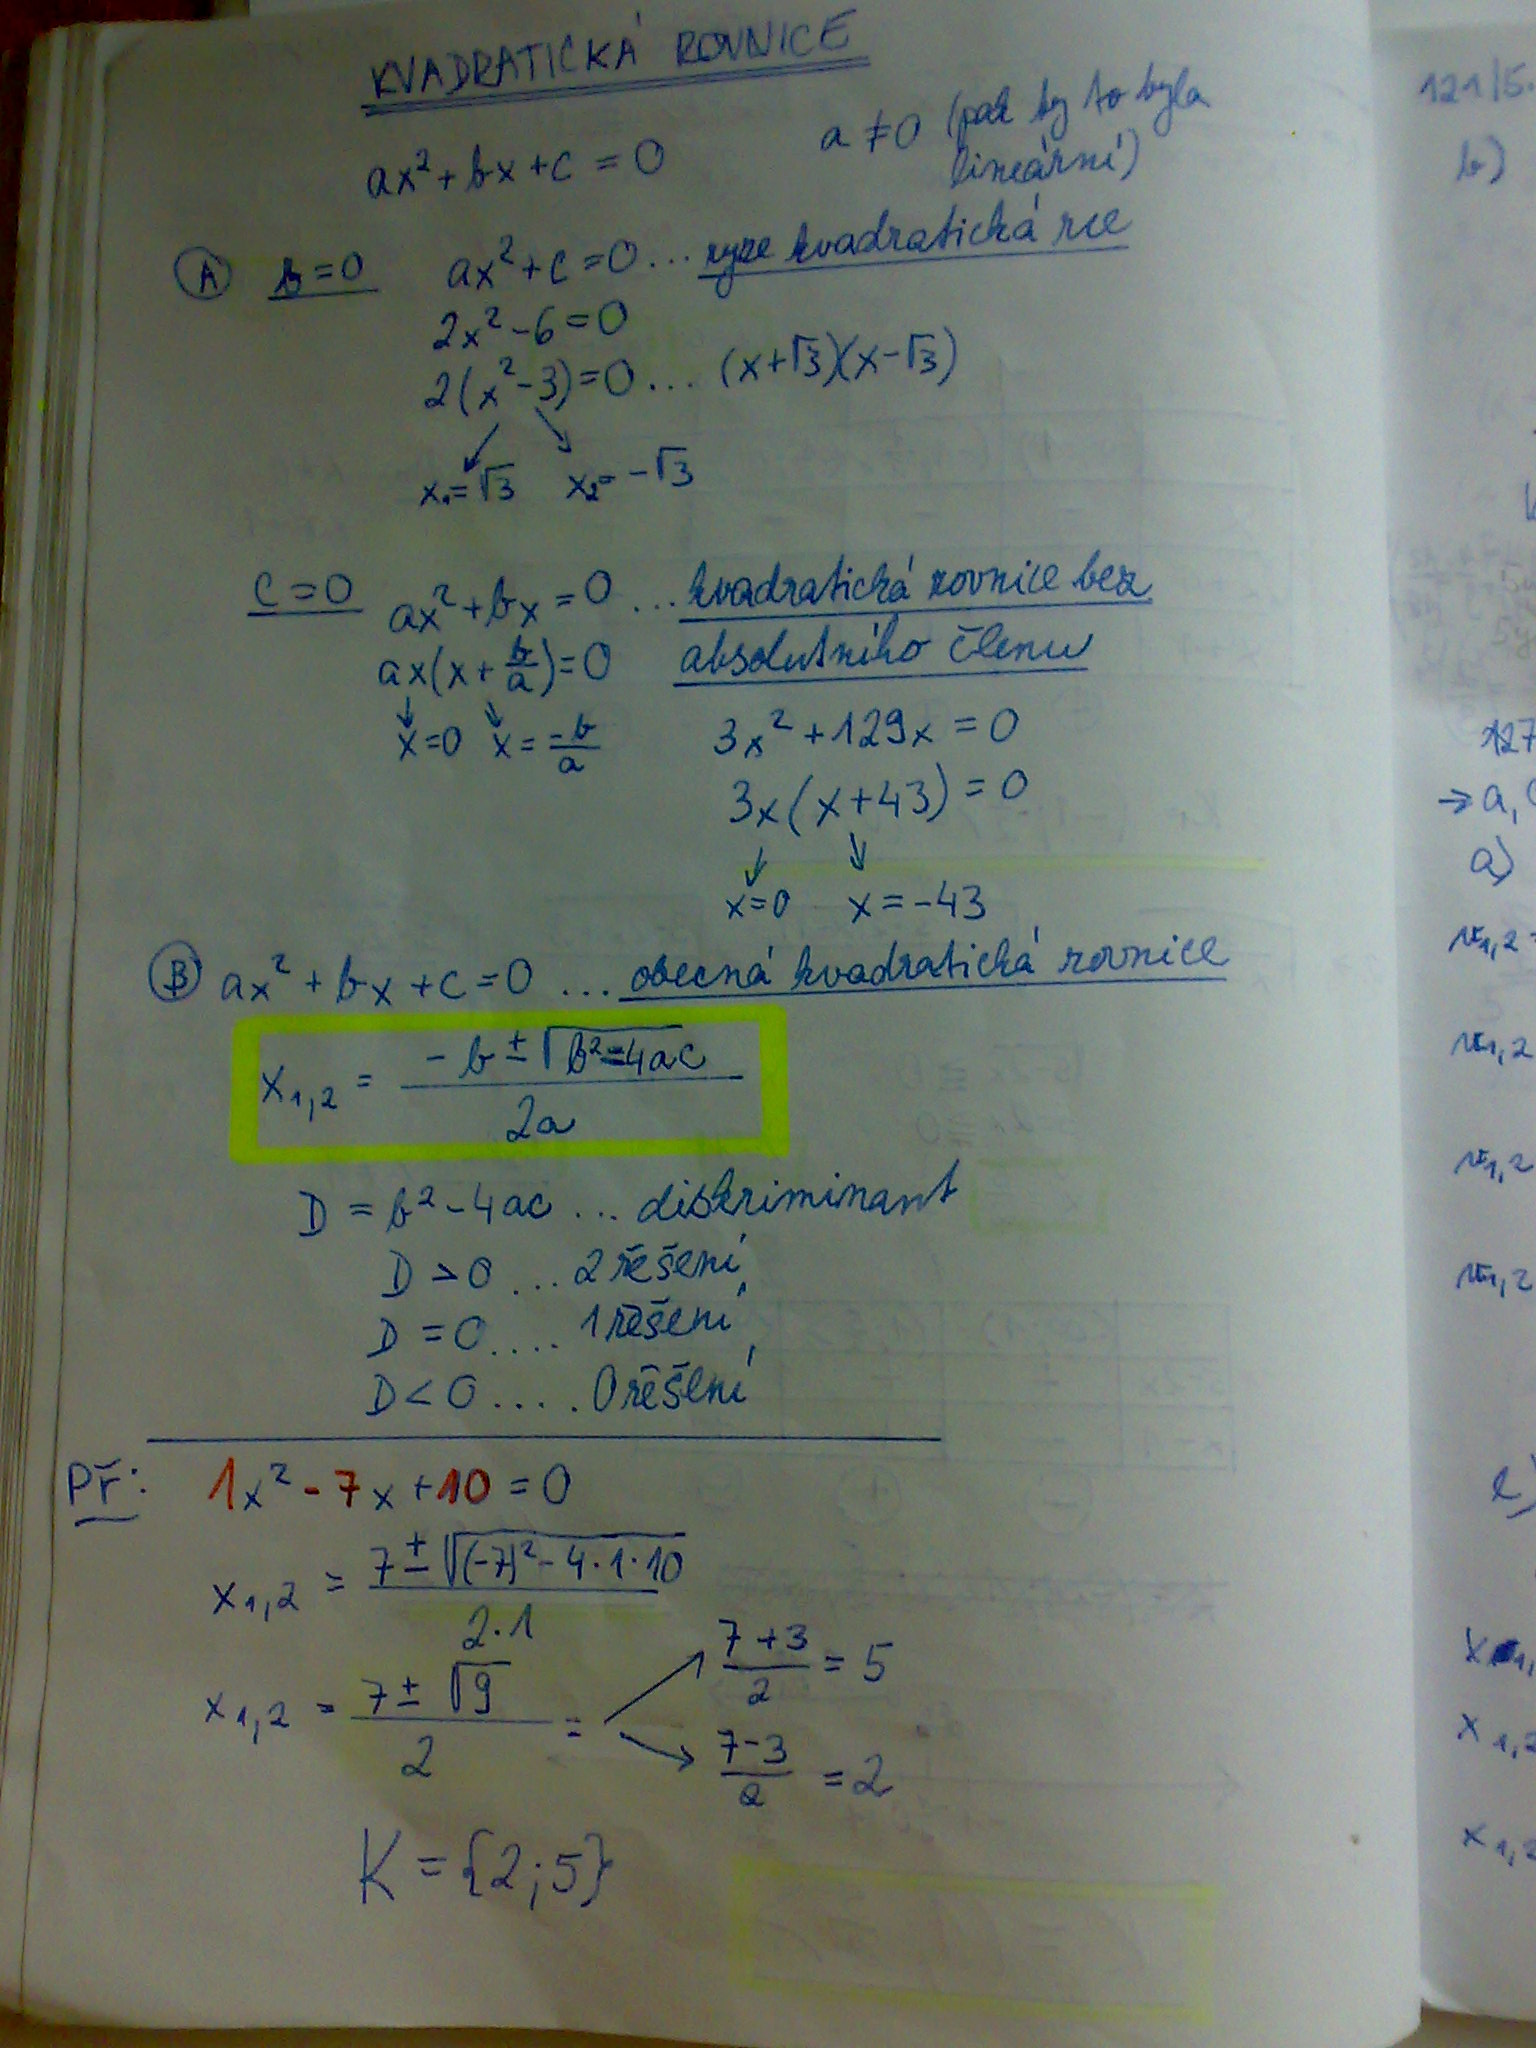 KVADRATICKÁ ROVNICE
ax² + bx + c = 0
a ≠ 0 (pak by to byla
lineární)
A b = 0 ax² + c = 0 ... ryze kvadratická rce
2x² - 6 = 0
2(x² - 3) = 0 ... (x + √3)(x - √3)
x₁ = √3 x₂ = -√3
c = 0 ax² + bx = 0 ... kvadratická rovnice bez
absolutního členu
ax(x + b/a) = 0
x = 0 x = -b/a
3x² + 129x = 0
3x(x + 43) = 0
x = 0 x = -43
B ax² + bx + c = 0 ... obecná kvadratická rovnice
x₁,₂ = (-b ± √(b² - 4ac)) / 2a
D = b² - 4ac ... diskriminant
D > 0 ... 2 řešení
D = 0 .... 1 řešení
D < 0 .... 0 řešení
Př: 1x² - 7x + 10 = 0
x₁,₂ = (7 ± √((-7)² - 4·1·10)) / 2·1
x₁,₂ = (7 ± √9) / 2 =
(7 + 3) / 2 = 5
(7 - 3) / 2 = 2
K = {2; 5}
121/5.
b)
127
→ a, (
a)
x₁,₂
x₁,₂